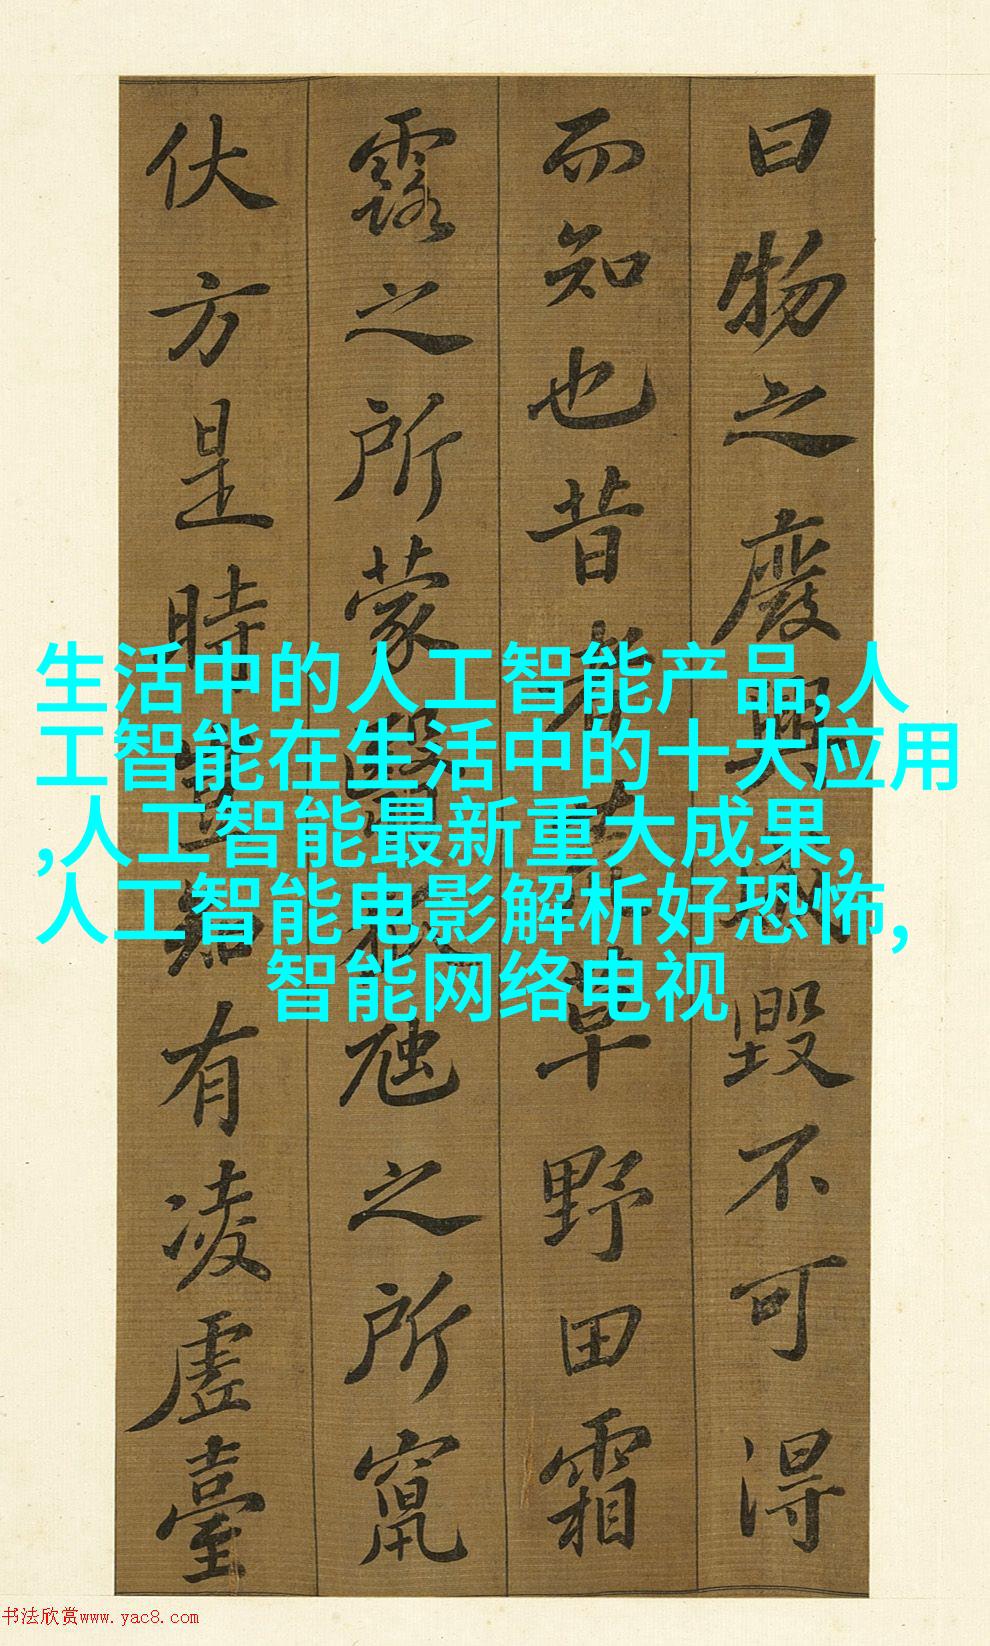 曰物之廢興成毀不可得
而知也昔者荒草野田霜
露之所蒙翳狐虺之所竄
伏方是時豈知有凌虛臺
生活中的人工智能产品,人
工智能在生活中的十大应用
,人工智能最新重大成果,
人工智能电影解析好恐怖,
智能网络电视
书法欣赏www.yac8.com